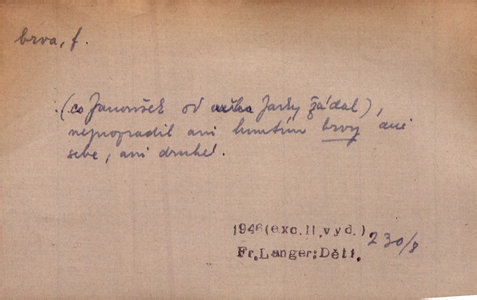 brva, f.
(co Janoušek od Jarky žádal),
ani hnutím brvy ani
sebe, ani druhé.
1946(exc.II.vyd.)
Fr.Langer:Děti. 230/8